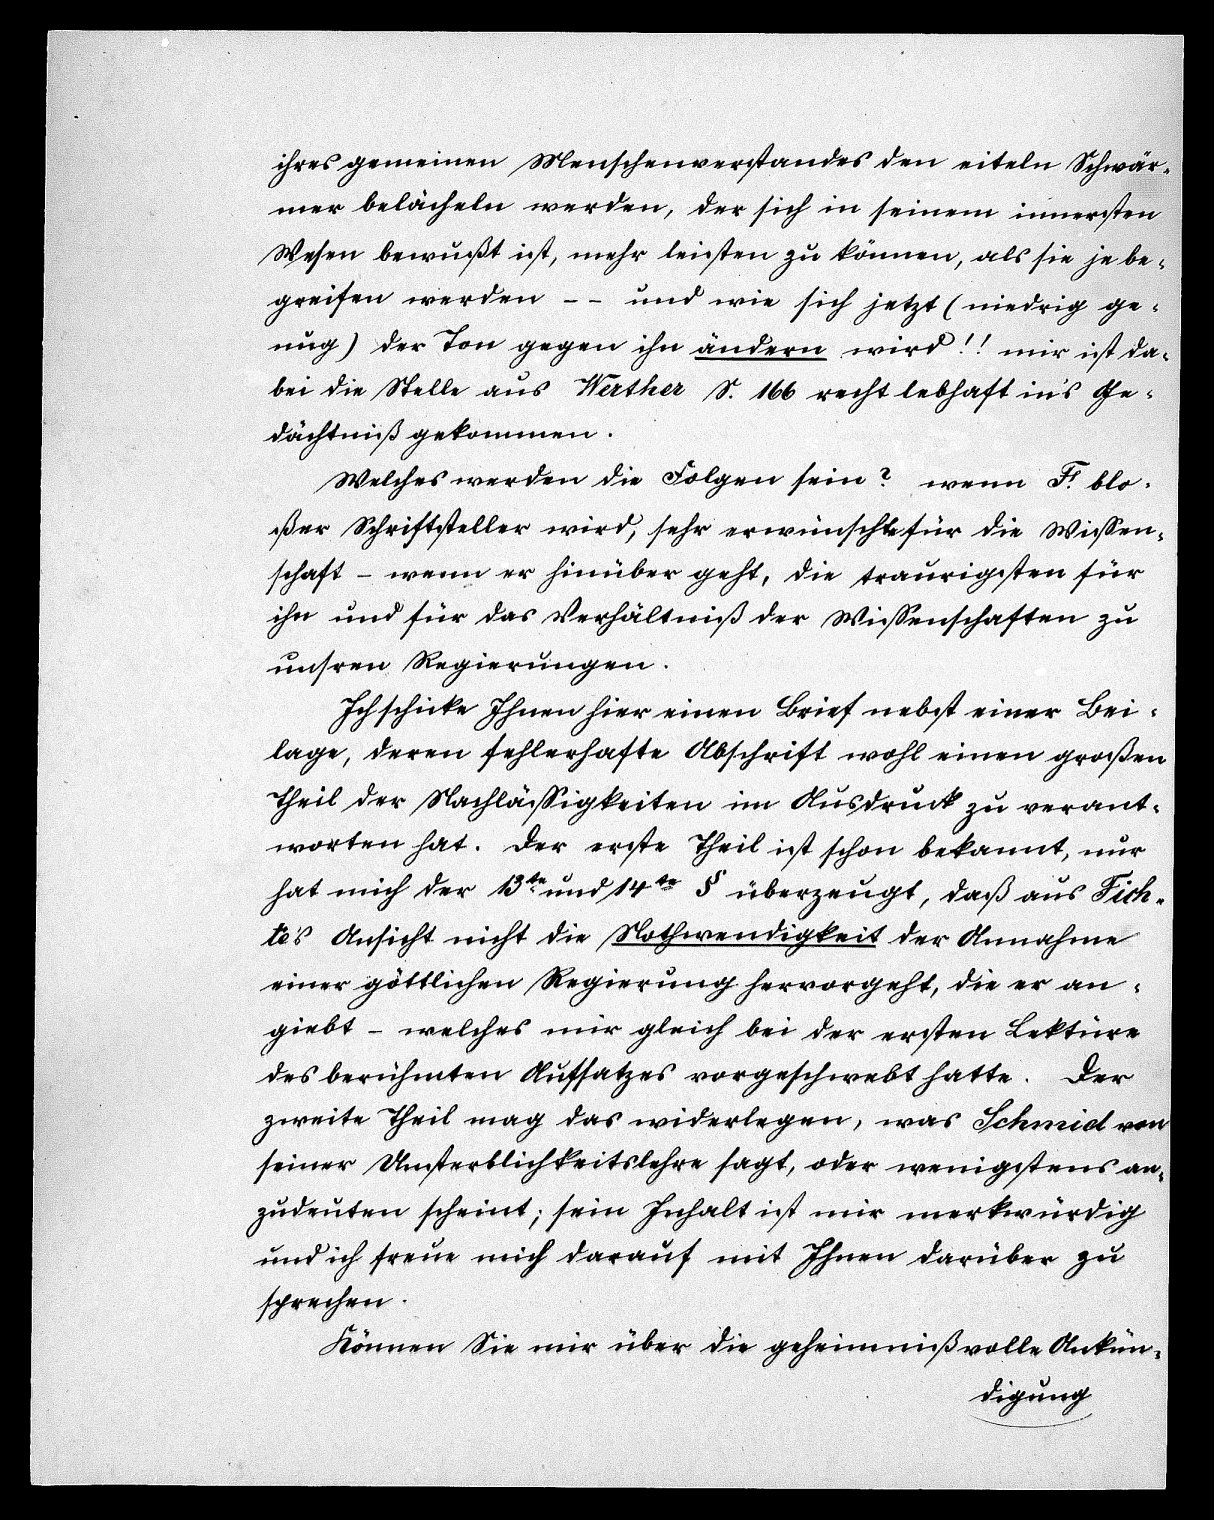 ihres gemeinen Menschenverstandes den eiteln Schwär-
mer belächeln werden, der sich in seinem innersten
Wesen bewußt ist, mehr leisten zu können, als sie je be-
greifen werden -- und wie sich jetzt (niedrig ge-
nug) der Ton gegen ihn ändern wird!! mir ist da-
bei die Stelle aus Werther S. 166 recht lebhaft in's Ge-
dächtniß gekommen.
Welches werden die Folgen sein? wenn F. blo-
ßer Schriftsteller wird, sehr erwünschte für die Wissen-
schaft - wenn er hinüber geht, die traurigsten für
ihn und für das Verhältniß der Wissenschaften zu
unsren Regierungen.
Ich schicke Ihnen hier einen Brief nebst einer Bei-
lage, deren fehlerhafte Abschrift wohl einen großen
Theil der Nachlässigkeiten im Ausdruck zu verant-
worten hat. Der erste Theil ist schon bekannt, nur
hat mich der 13te und 14te § überzeugt, daß aus Fich-
te's Ansicht nicht die Nothwendigkeit der Annahme
einer göttlichen Regierung hervorgeht, die er an-
giebt - welches mir gleich bei der ersten Lektüre
des berühmten Aufsatzes vorgeschwebt hatte. Der
zweite Theil mag das widerlegen, was Schmid von
seiner Unsterblichkeitslehre sagt, oder wenigstens an-
zudeuten scheint; sein Inhalt ist mir merkwürdig
und ich freue mich darauf mit Ihnen darüber zu
sprechen.
Können Sie mir über die geheimnißvolle Ankün-
digung